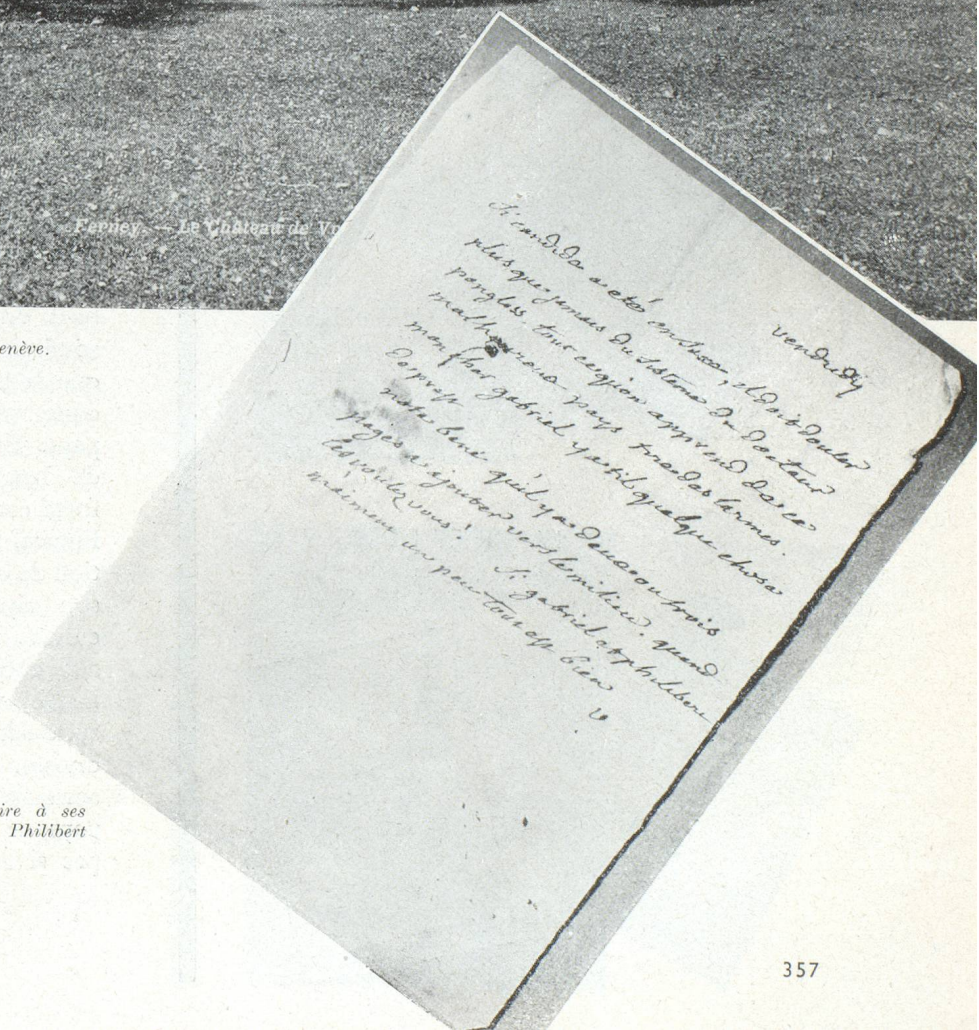 Ferney. — Le Château de Vo
enève.
vendredy
Si candide a eté en Suxe, il doit douter
plus que jamais du sisteme du docteur
pangloss. tout ce qu'on apprend de ce
malheureux pays tire des larmes.
mon cher gabriel y a t il quelque chose
de
nota bene qu'il y a deux ou trois
pages a ajuster vers le milieu. quand
les voulez vous? Si gabriel et philibert
maiment un peu tout est bien
V
ire à ses
Philibert
357